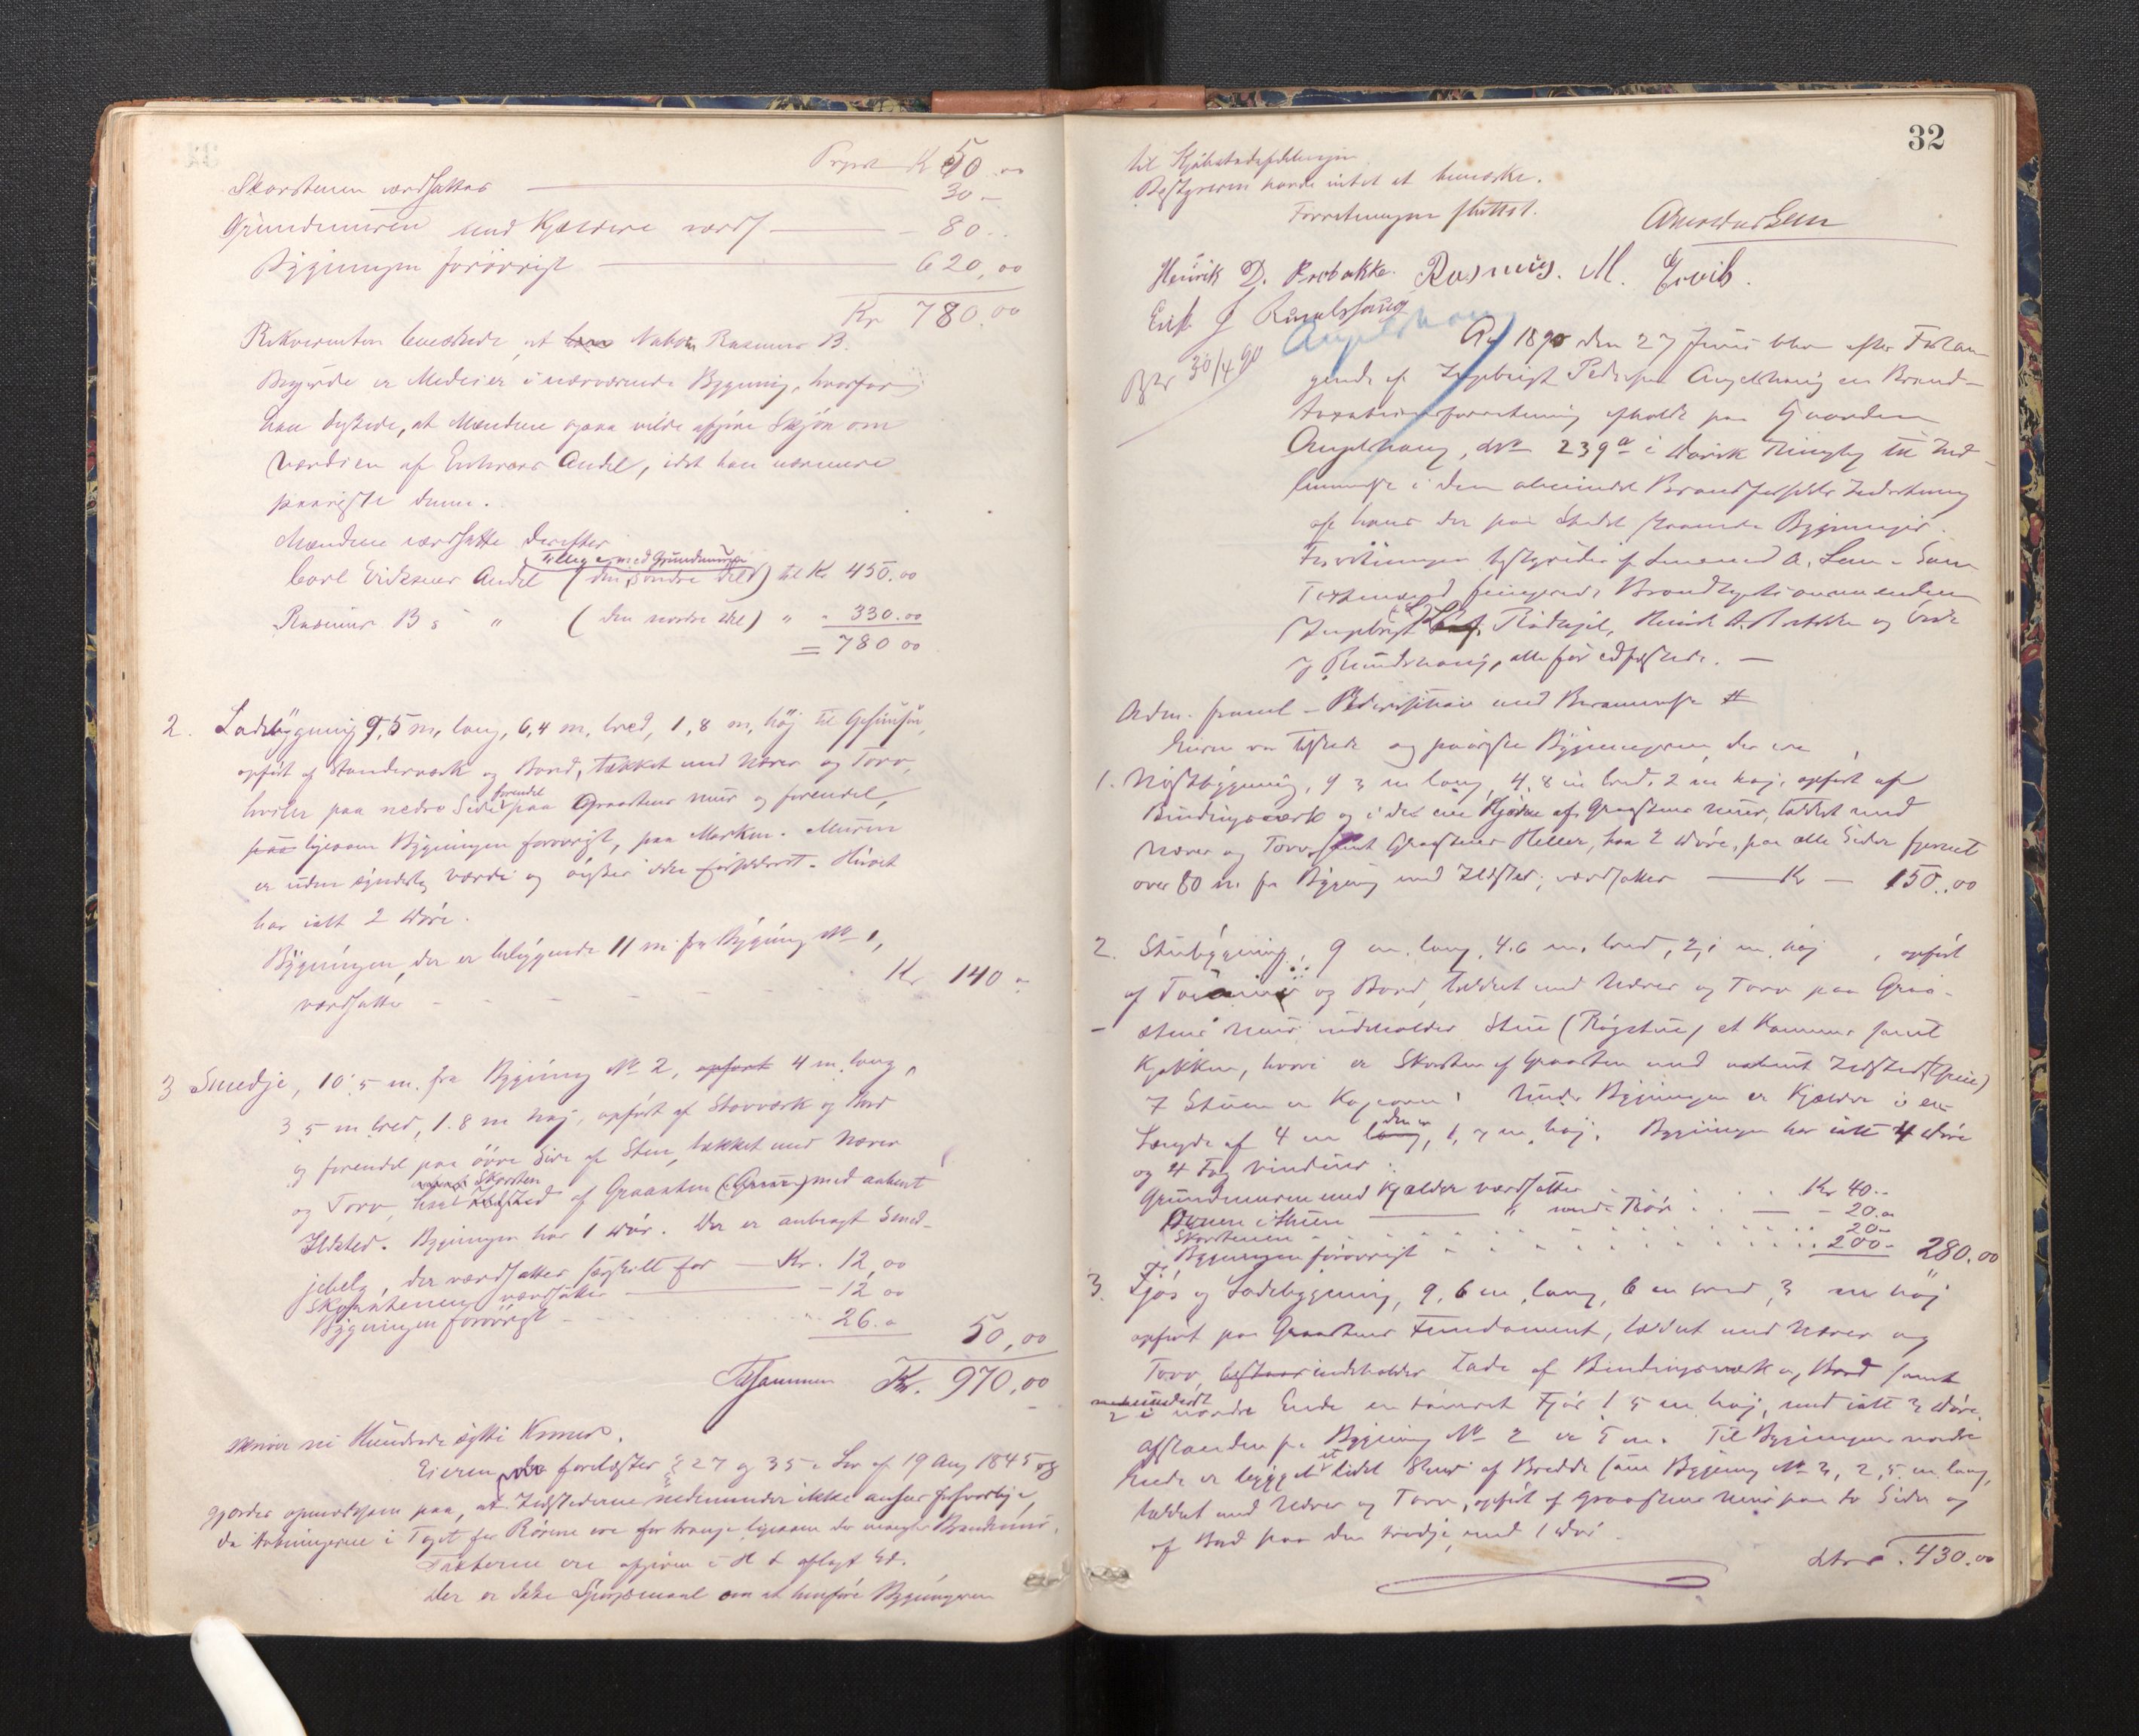 Kr 50 00
Skorstenen værdsattes 30 -
Grundmuren med Kjældere værds - 80 -
Bygningen forøvrigt 620,00
Kr 780.00
Rekvirenten bemærkede, at Naboen Rasmus B.
er Medeier i nærværende Bygning, hvorfor
han ønskede, at Mændene ogsaa vilde afgive Skjøn om
Værdien af Enhvers Andel, idet han nærmere
paaviste denne.
Mændene værdsatte derefter
tilligemed Grundmuren
Carl Eriksens Andel (den søndre Del) til Kr 450.00
Rasmus B s " (den nordre Del) " - 330.00
= 780 00
2. Ladebygning 9,5 m, lang, 6,4 m, bred, 1,8 m, høj til Gesimsen,
opført af Standerværk og Bord, tækket med Næver og Torv,
hviler paa nedre Side fordel paa Graastens Mur og forendel,
paa ligesom Bygningen forøvrigt, paa Marken. Muren
er uden synderlig Værdi og ønskes ikke forsikkret. Huset
har ialt 2 Døre.
Bygningen, der er beliggende 11 m. fra Bygning No 1,
værdsattes Kr 140 -
3 Smedje, 10,5 m. fra Bygning No 2, opført 4 m. lang,
3,5 m bred, 1.8 m høj, opført af Stavværk og Bord
og forendel paa øvre Side af Sten, tækket med Næver
og Torv, har Skorsten Ildsted af Graasten (Grue) med aabent
Ildsted. Bygningen har 1 Dør. Der er anbragt Smed-
jebelg, der værdsattes særskilt for - Kr. 12,00
Skorstenen værdsattes - 12 00
Bygningen forøvrigt 26.- 50,00
Tilsammen Kr. 970,00
skriver ni Hundrede sytti Kroner.
Eieren blev forelæst § 27 og 35 i Lov af 19 Aug 1845 og
gjordes opmerksom paa, at Ildstederne nedenunder ikke ansees forsvarlige,
da Aabningerne i Taget for Rørene ere for trange ligesom der mangler Brandmur.
Takterne ere afgivne i H t aflagt Ed.
Der er ikke Spørgsmaal om at henføre Bygningerne
32
til Kjøbstadafdelingen
Bestyreren havde intet at bemærke.
Forretningen sluttet.
A Lem
Henrik D. Rasmus. M.
Erik J
Angelshaug
30/4 90
Aar 1890 den 27 Juni blev efter Forlan-
gende af Ingebrigt Pedersen Angelshaug en Brand-
taxationsforretning afholdt paa Gaarden
Angelshaug, No 239a i Davik Thinglag til Ind-
lemmelse i den almindel Brandforsikrs Indretning
af hans der paa Stedet staaende Bygninger.
Forretningen bestyredes af Lensmand A. Lem. Som
Taxtmænd fungerede Brandtaxtionsmændene
Ingebrigt Rødsejl, Henrik D. og Erik
J. alle før edfæstede. -
Adm. freml - Rekvisition med Berammelse #
Eieren var tilstede og paaviste Bygningerne, der ere
1. Nøstbygning, 9 3 m lang, 4,8 m bred, 2 m høj, opført af
Bindingsværk og i det ene Hjørne af Graastens Mur, tækket med
Næver og Torv samt Graastens Heller, har 2 Døre, paa alle Sider fjernet
over 80 m. fra Bygning med Ildsted, værdsattes Kr - 150,00
2. Stuebygning, 9 m. lang, 4.6 m. bred, 2,1 m. høj, opført
af Tømmer og Bord, tækket med Næver og Torv paa Graa-
stens Mur indeholder Stue (Røgstue) et Kammer samt
Kjøkken, hvori er Skorsten af Graasten med aabent Ildsted (Grue)
I Stuen er Kogeovn. Under Bygningen er Kjælder i en
Længde af 4 m lang, den er 1,7 m. høj. Bygningen har ialt 4 Døre
og 4 Fag Vinduer
Grundmuren med Kjælder værdsattes Kr 40 -
Ovnen i Stuen " med Rør - 20.-
Skorstenen 20 -
Bygningen forøvrigt 200 - 280.00
3. Fjøs og Ladebygning, 9,6 m, lang, 6 m bred, 3 m høj
opført paa Graastens Fundament, tækket med Næver og
Torv, bestaar indeholder Lade af Bindingsværk og Bord samt
i nordre Ende en tømret Fjøs 1 5 m høj, med ialt 3 Døre.
Afstanden fra Bygning No 2 er 5 m. Til Bygningens nordre
Ende er bygget et lidet Skur af Bredde som Bygning No 3, 2,5 m lang,
tækket med Næver og Torv, opført af Graastens Mur paa to Sider og
af Bord paa den tredje, med 1 Dør
430.00